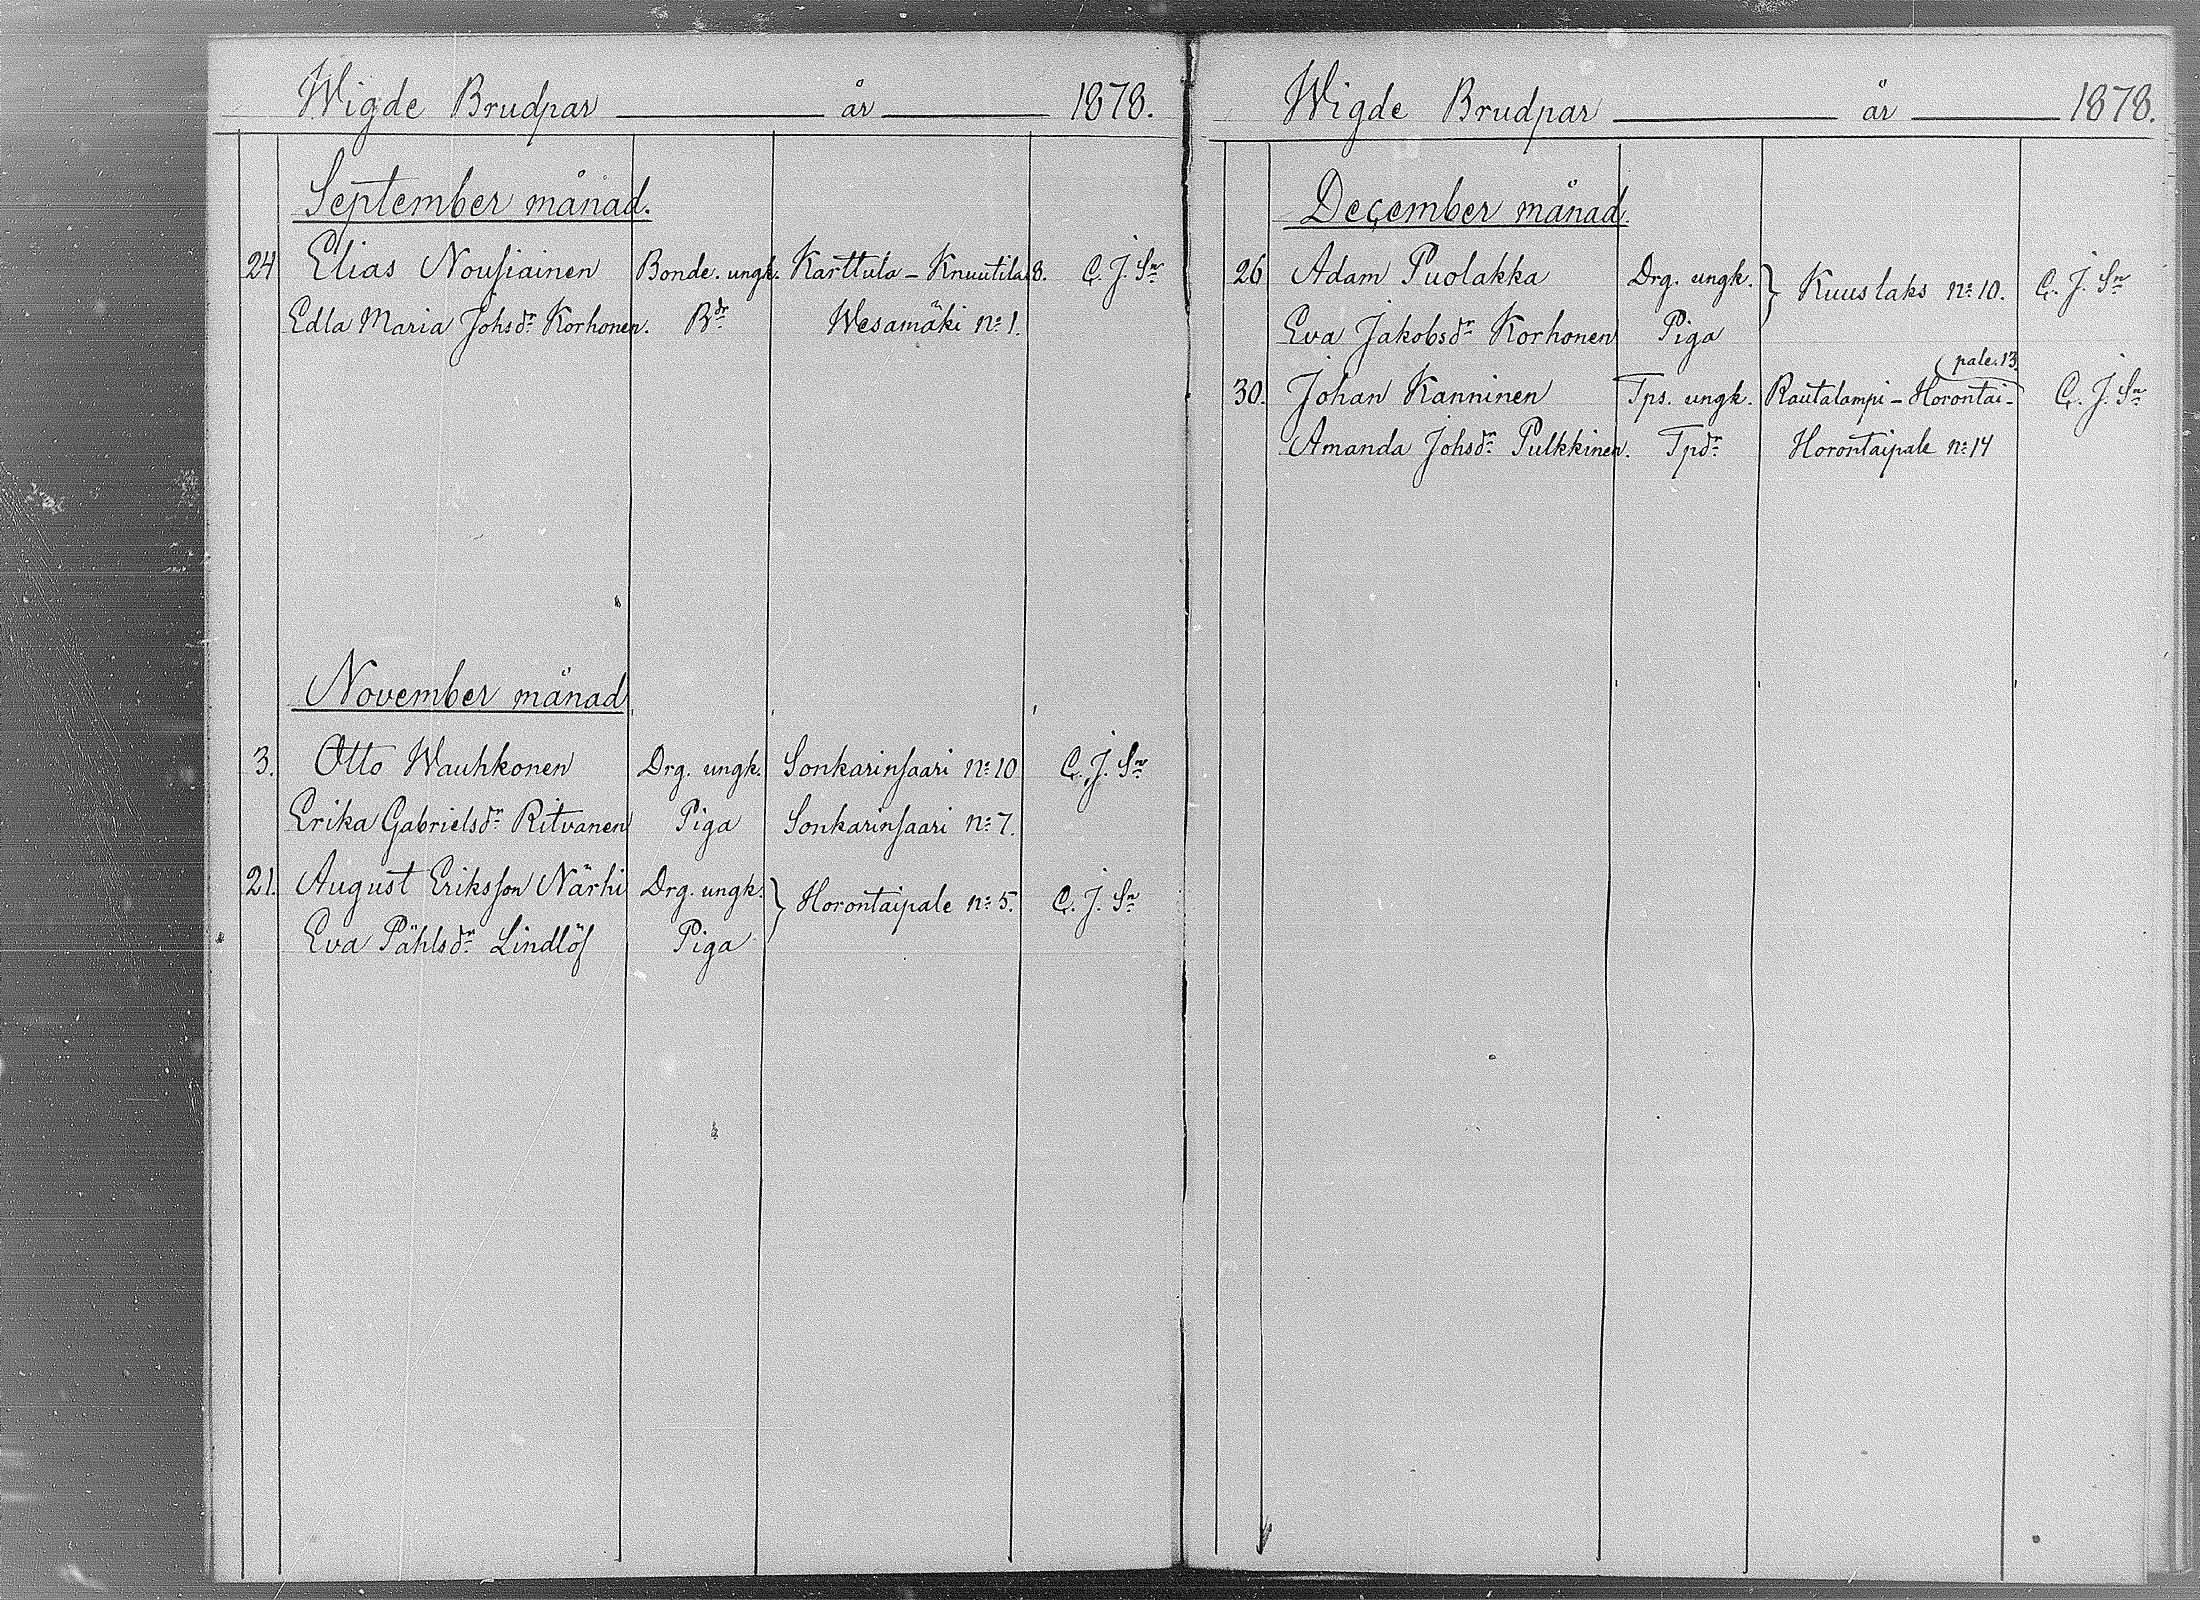 Wigde Brudpar år 1878.
September månad.
24 Elias Nousiainen Bonde. ungk. Karttula - Knuutila 3. C. J. Sn
Edla Maria Johsdr Korhonen. Bdr Wesamäki No 1.
November månad
3. Otto Wauhkonen Drg. ungk. Sonkarinsaari No 10 C. J. Sn
Erika Gabrielsdr Ritvanen Piga Sonkarinsaari No 7.
21. August Eriksson Närhi Drg. ungk. } Horontaipale No 5. C. J. Sn
Eva Påhlsdr Lindlöf Piga
Wigde Brudpar år 1878.
December månad.
26 Adam Puolakka Drg. ungk. } Kuuslaks No 10. C. J. Sn
Eva Jakobsdr Korhonen Piga
(pale. 13.
30. Johan Kanninen Tps. ungk. Rautalampi - Horontai- C. J. Sn
Amanda Johsdr Pulkkinen. Tpdr Horontaipale No 14